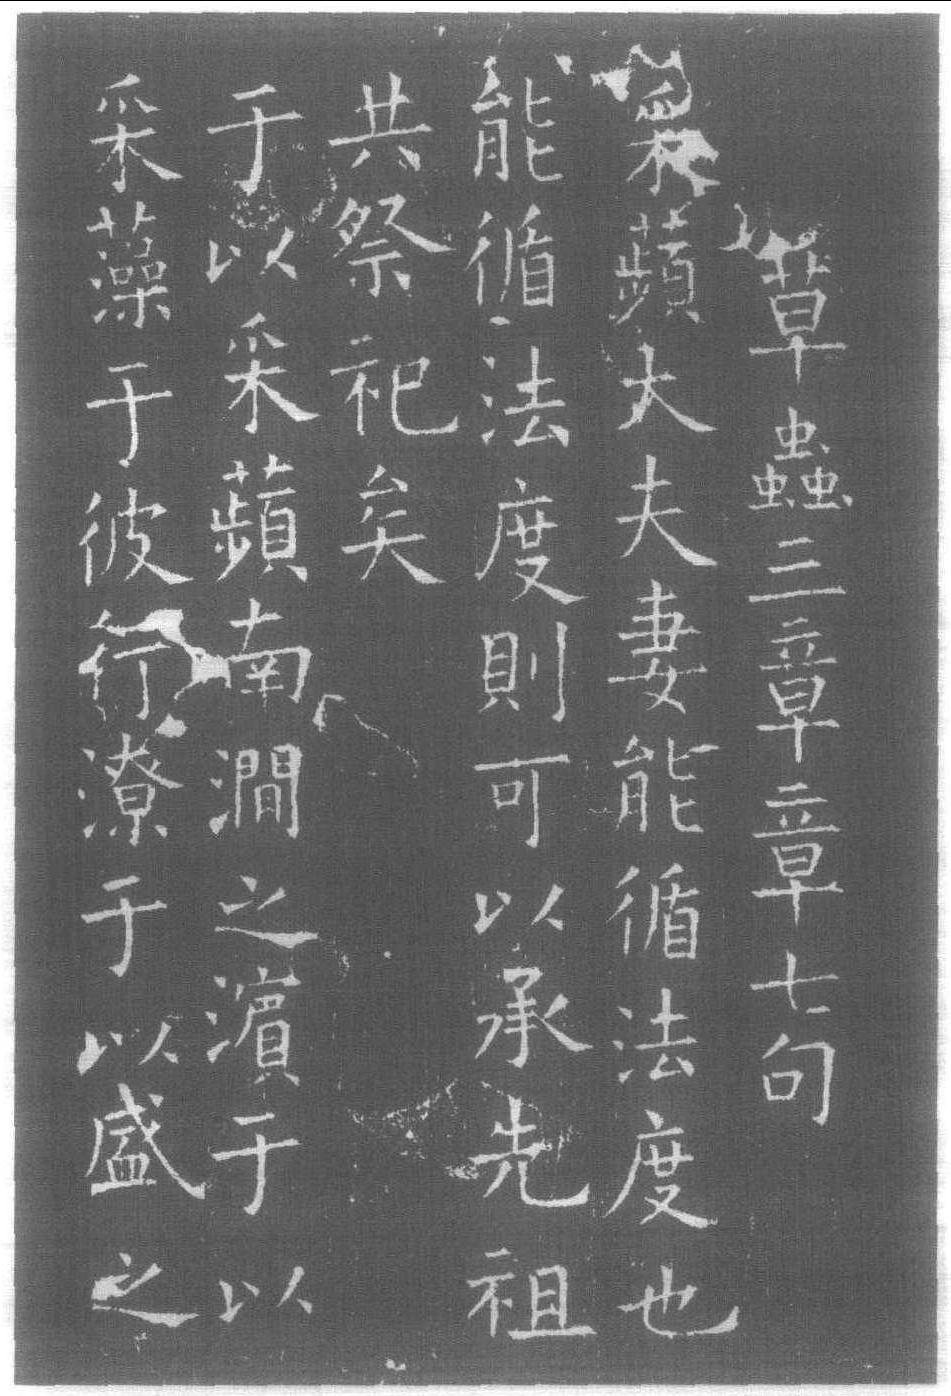 草蟲三章章七句
采蘋大夫妻能循法度也
能循法度則可以承先祖
共祭祀矣
于以采蘋南澗之濱于以
采藻于彼行潦于以盛之